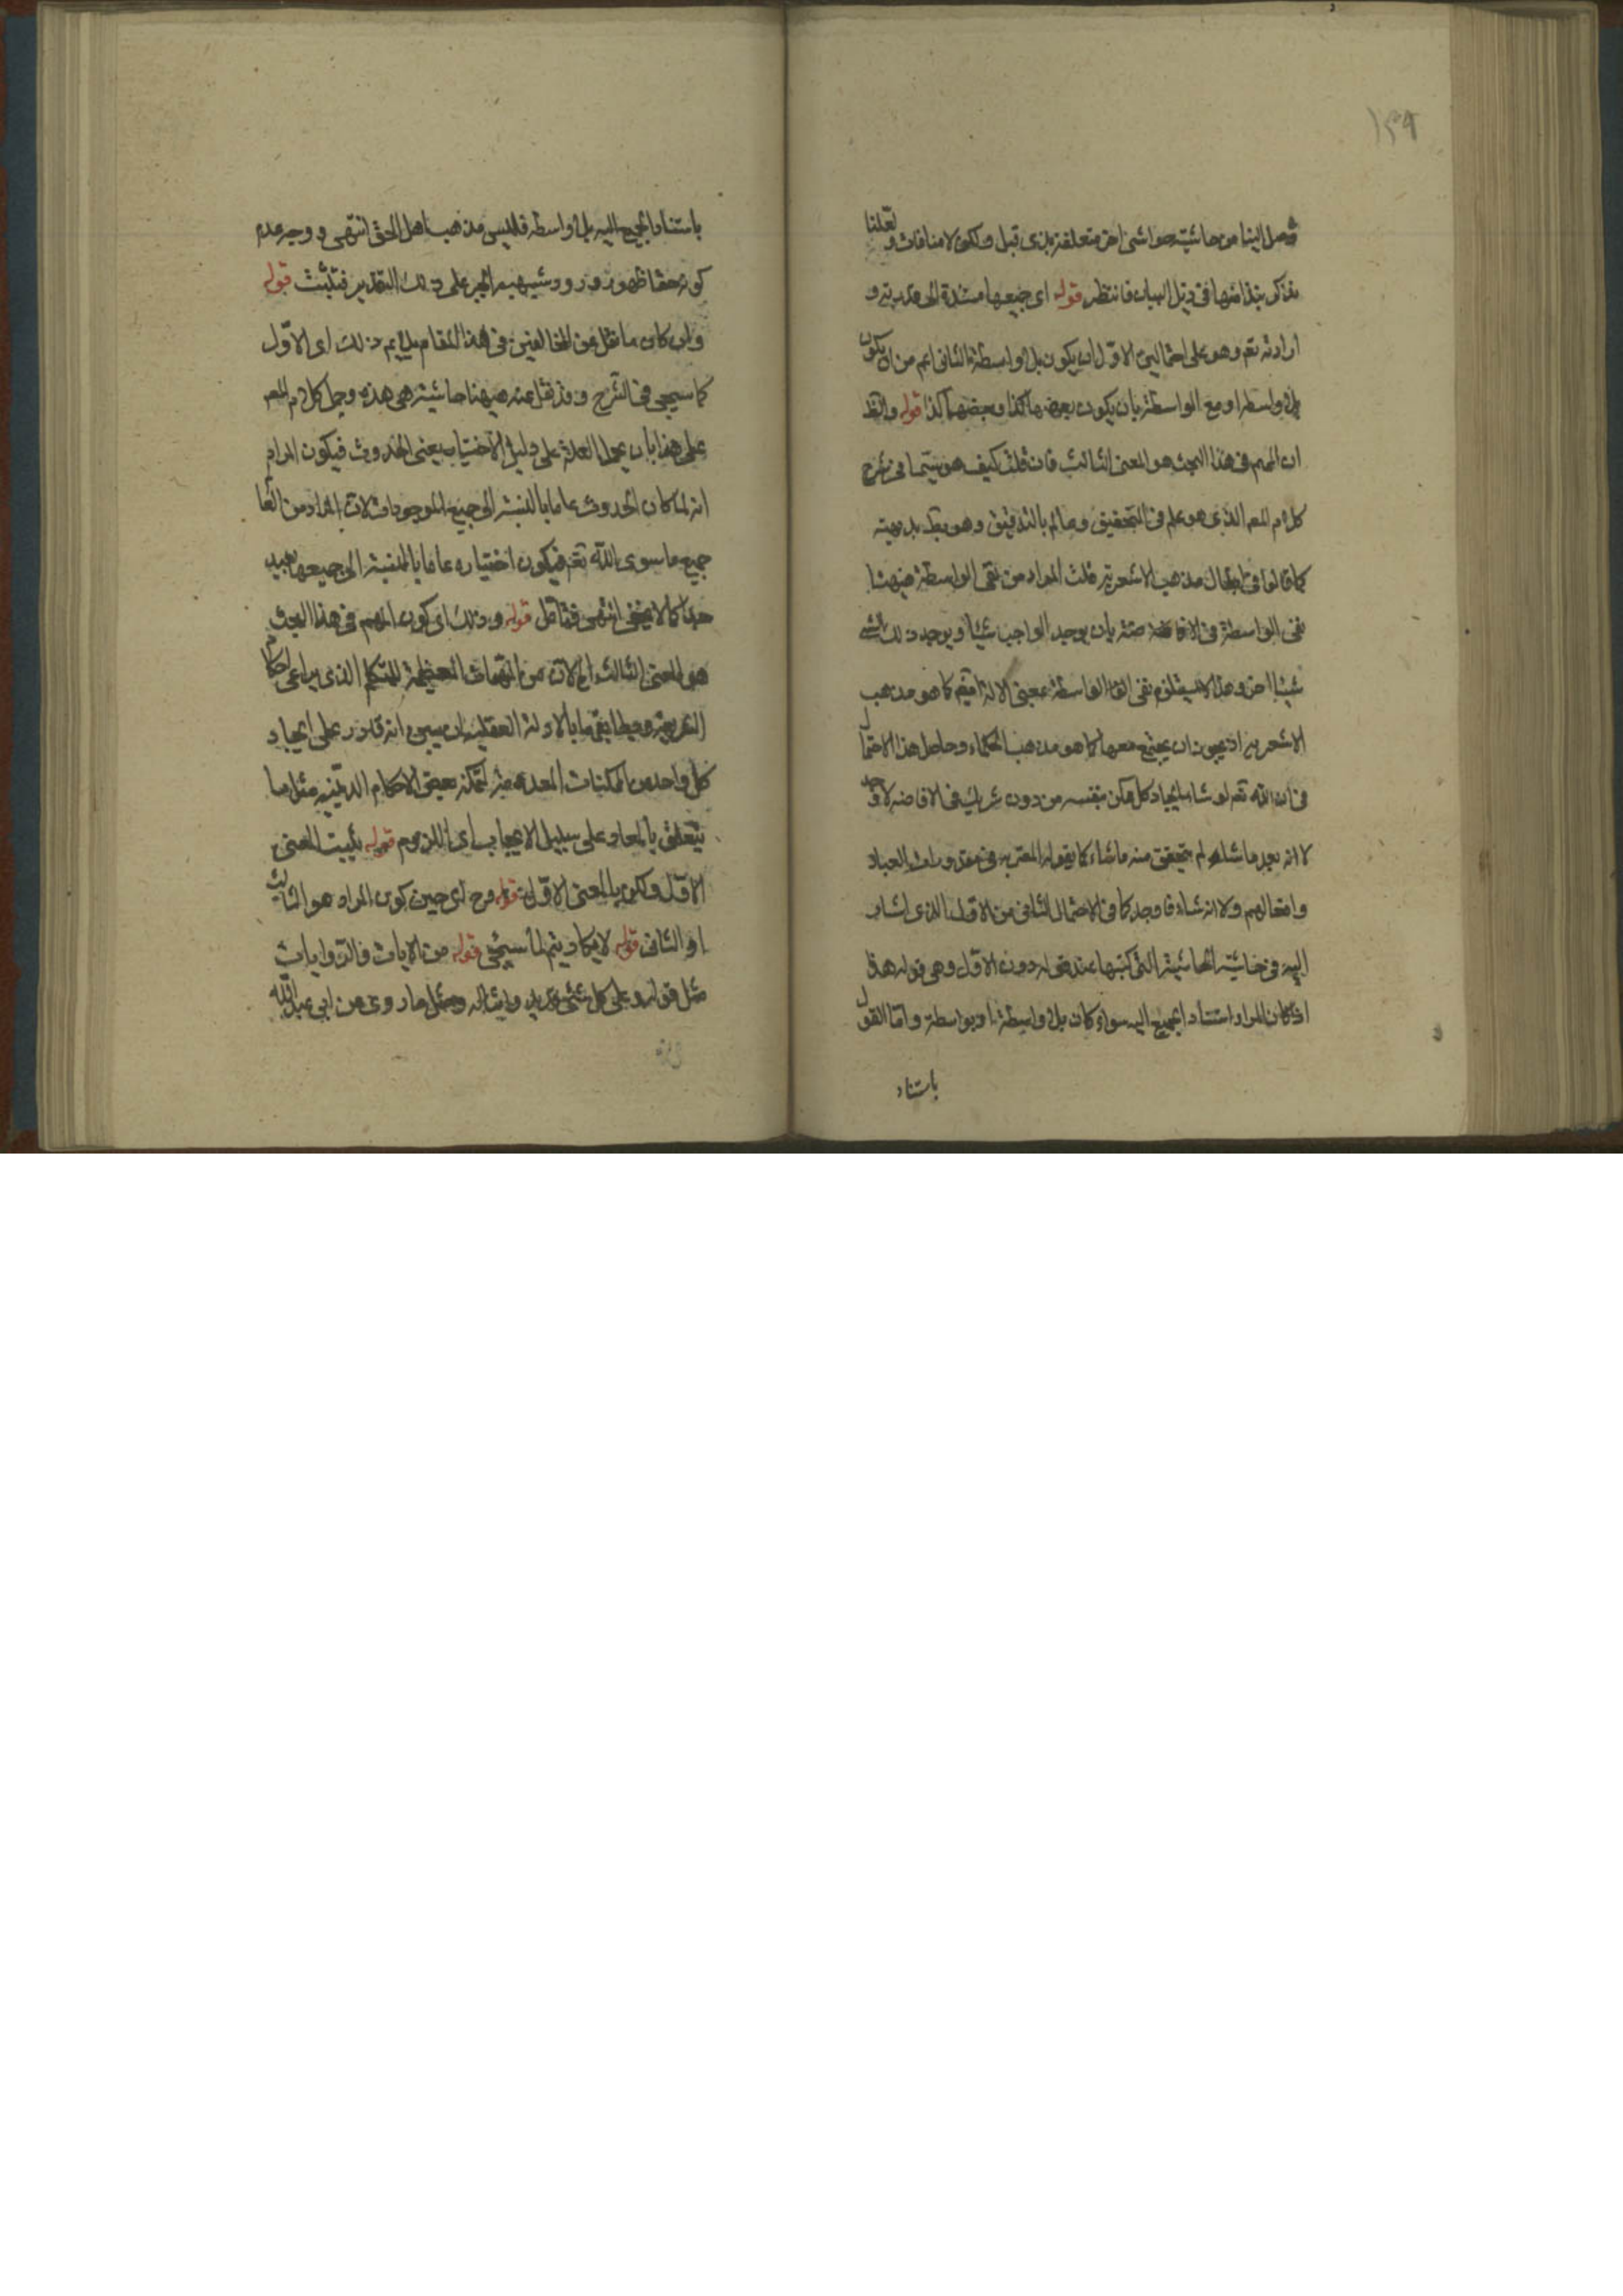 ١٣٩
وصل الينا من حاشيته حواشى اخر متعلقة بذى قبل ولكن لا منافات ولعلنا
نذكر نبذا منها فى ذيل البيان فانتظر قوله اى جميعها مستندة الى قدرته و
ارادته تعم وهو على احتمالين الاول ان يكون بلا واسطة الثانى اعم من ان يكون
بلا واسطة او مع الواسطة بان يكون بعضها كذا وبعضها كذا قوله والظ
ان المهم فى هذا البحث هو المعنى الثالث فان قلت كيف هو سيما فى شرح
كلام المصر الذى هو علم فى التحقيق وعالم بالتدقيق وهو بديهته
كما قالوا فى ابطال مذهب الاشعرية قلت المراد من نفى الواسطة ههنا
نفى الواسطة فى الافاضة منه بان يوجد الواجب شيئا ويوجد ذلك الشئ
شيئا اخر وهذا لا يستلزم نفى الواسطة بمعنى الالة كما هو مذهب
الاشعرية اذ يجوز ان يجتمع معها كما هو مذهب الحكماء وحاصل هذا الاحتمال
فى ان الله تعم لو شاء ايجاد كل ممكن بنفسه من دون شريك فى الافاضة لاوجد
لا انه بعد ما شاء لم يتحقق منه ما شاء كما يقوله المعتزله فى مقدورات العباد
وافعالهم ولا انه شاء فاوجد كما فى الاحتمال الثانى من الاول الذى اشار
اليه فى حاشية الحاشية التى كتبها عند قوله دون الاول وهى قوله هذا
اذا كان المراد استناد الجميع اليه سواء كان بلا واسطة او بواسطة واما القول
باستناد
باستناد الجميع اليه بلا واسطة فليس مذهب اهل الحق انتهى ووجه عدم
كونه حقا ظهور ورود شبهة الجبر على ذلك التقدير فتثبت قوله
وان كان ما نقل عن المخالفين فى هذا المقام يلايم ذلك اى الاول
كما سيجى فى الشرح وقد نقل عنه ههنا حاشية هى هذه وحمل كلام المصر
على هذا بان يحمل العلة على دليل الاختيار يعنى الحدوث فيكون المرام
انه لما كان الحدوث عاما بالنسبة الى جميع الموجودات لان المراد من العالم
جميع ما سوى الله تعم فيكون اختياره عاما بالنسبة الى جميعها بعيد
جدا كما لا يخفى انتهى فتامل قوله وذلك اى كون المهم فى هذا البحث
هو المعنى الثالث لان من المهمات العظيمة للمتكلم الذى يراعى احكام
الشريعة ويطابقها بالادلة العقلية ان يبين انه قادر على ايجاد
كل واحد من الممكنات المعدومة لتمكنه بعض الاحكام الدينيه مثل ما
يتعلق بالمعاد على سبيل الايجاب اى اللزوم قوله يثبت المعنى
الاول ولكن بالمعنى الاول قوله وح اى حين كون المراد هو الثالث
او الثانى قوله لا يكاد يتم لما سيجى قوله من الايات والروايات
مثل قوله وعلى كل شئ قدير وامثاله ومثل ما روى عن ابى عبدالله